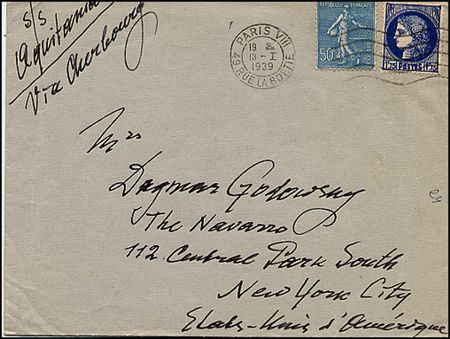 S/S
Aquitania
Via Cherbourg
PARIS VIII
19
13 - I
1939
49 RUE LA BOETIE
50
POSTES
Mrs
Dagmar Godowsky
The Navarro
112 Central Park South
New York City
Etats-Unis d'Amérique